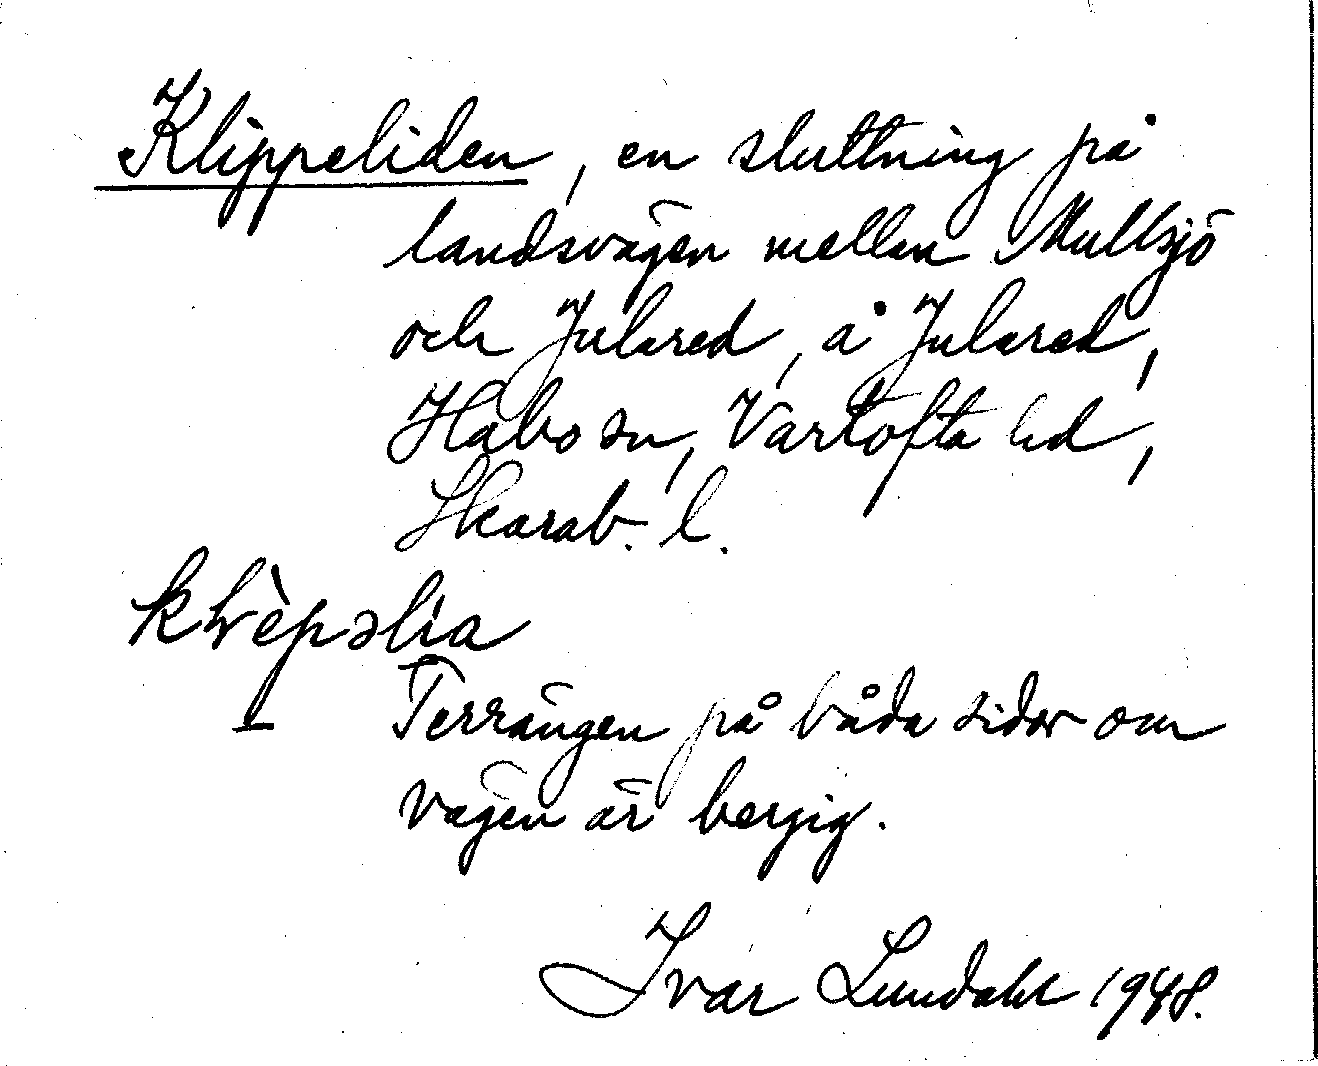 Klippeliden, en sluttning på
landsvägen mellan Mullsjö
och Julared, å Julared,
Habo sn, Vartofta hd,
Skarab. l.
Terrängen på båda sidor om
vägen är bergig.
Ivar Lundahl 1948.